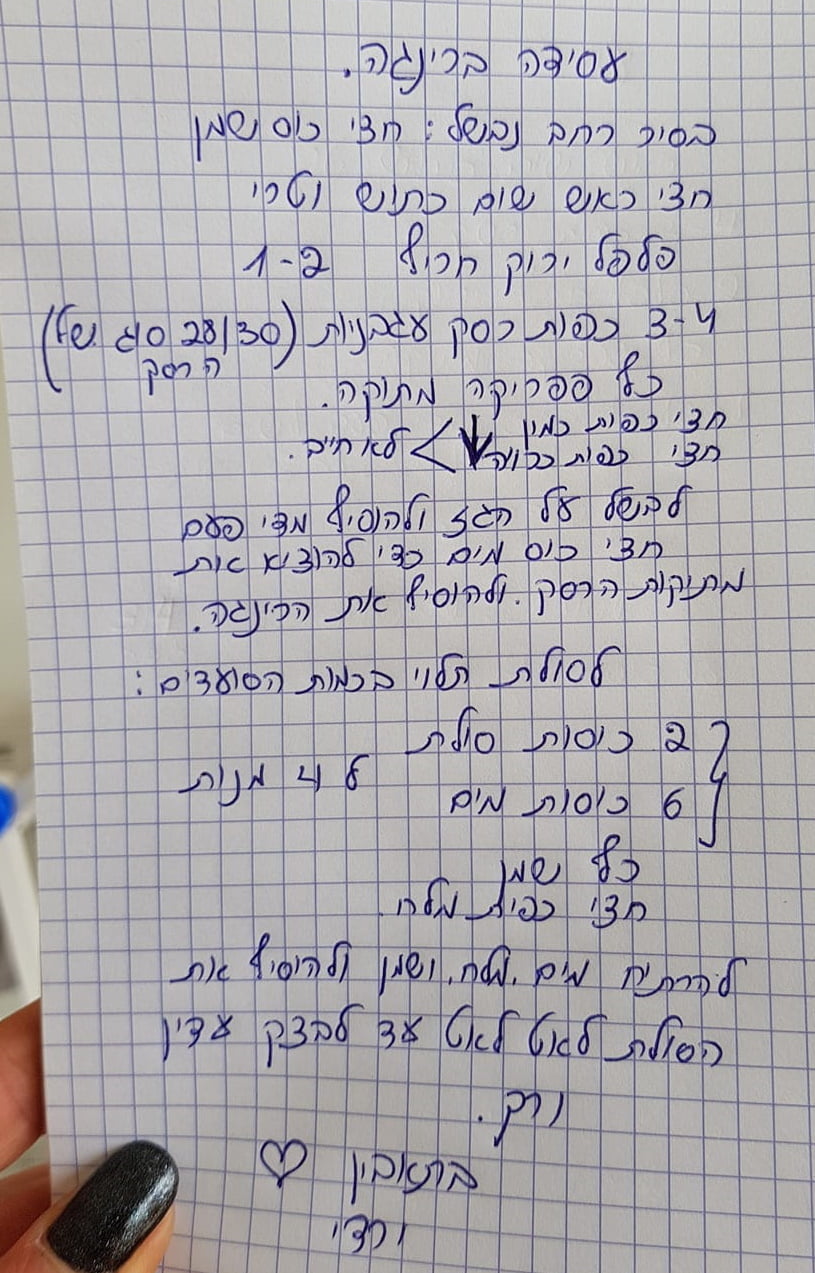 עסידה ברילגה.
בסיר רחב נבשל: חצי כוס שמן
חצי ראש שום כתוש וטרי
פלפל ירוק חריף 1-2
3-4 כפות רסק עגבניות (28/30 סוג של
הרסק)
כף פפריקה מתוקה.
חצי כפית כמון
חצי כפית כרוויה > לא חייב.
לבשל על הגז ולהוסיף מדי פעם
חצי כוס מים כדי להוציא את
מתיקות הרסק. ולהוסיף את הרילגה.
לסולת תלוי בכמות הסועדים:
2 כוסות סולת
ל 4 מנות
6 כוסות מים
כף שמן
חצי כפית מלח.
להרתיח מים, מלח, ושמן ולהוסיף את
הסולת לאט לאט עד לבצק עדין
ורק.
בתאבין ♡